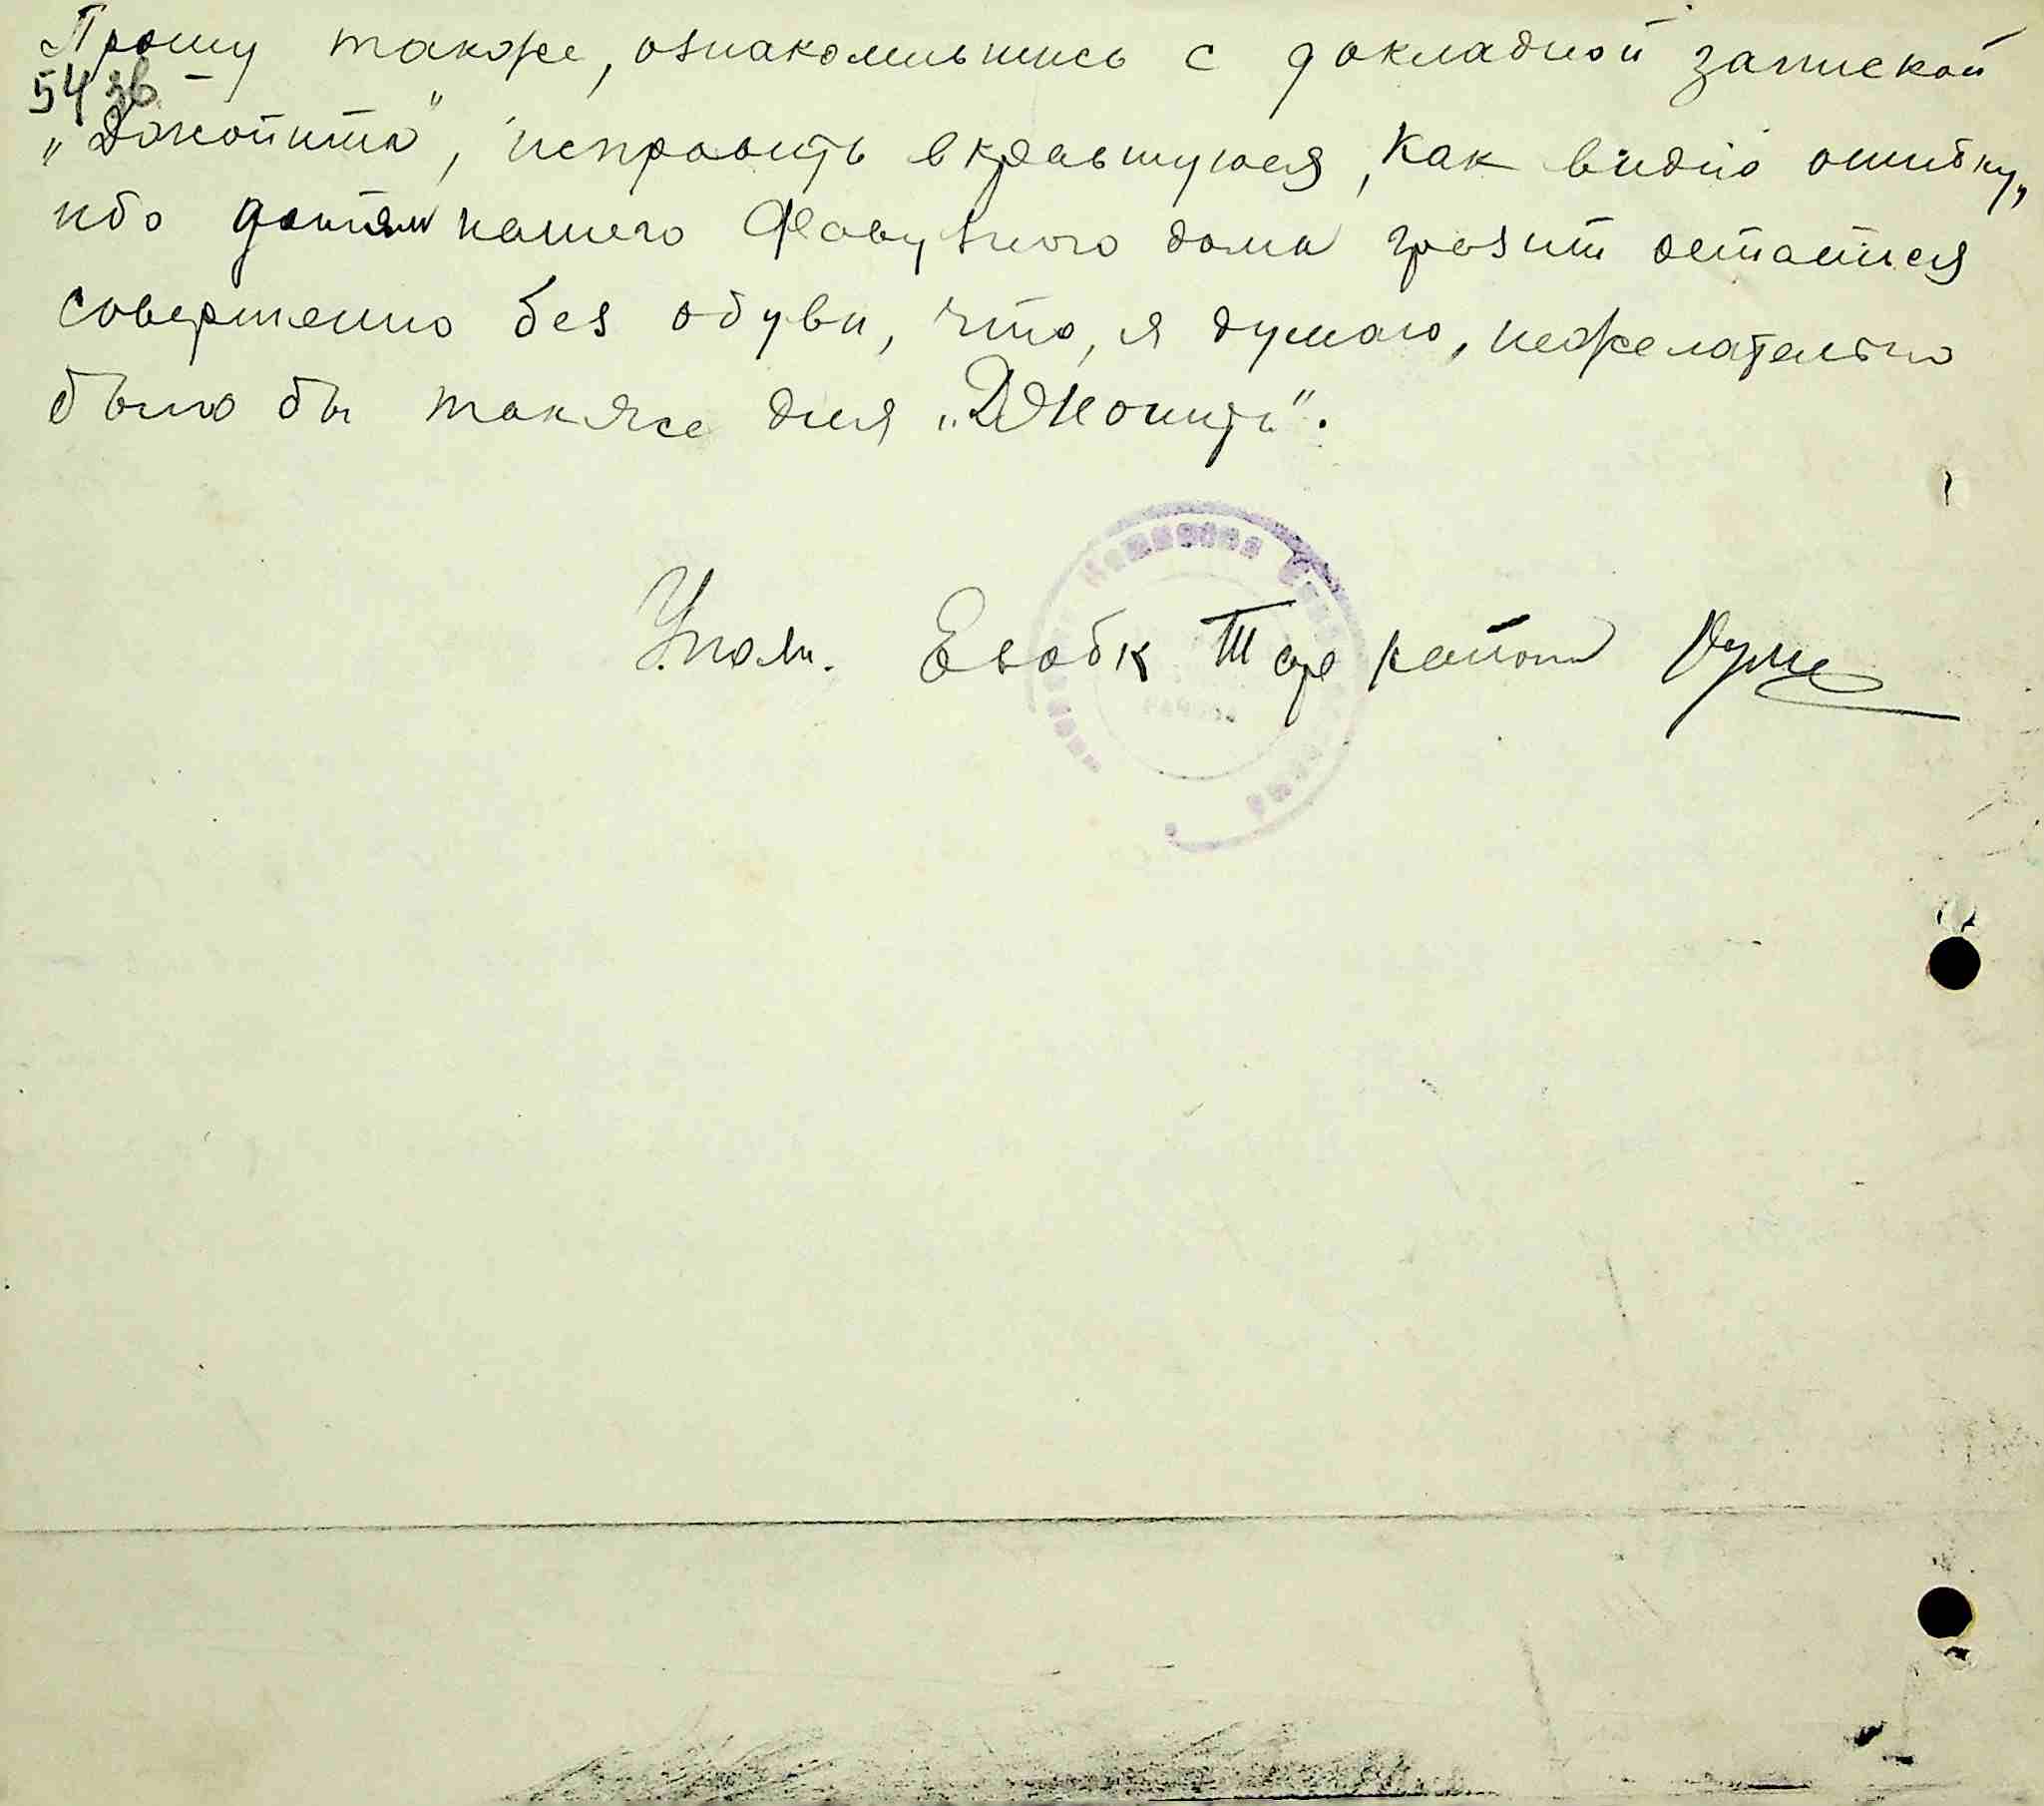 Прошу также, ознакомившись с докладной запиской
54 зв
„Джойнта", исправить вкравшуюся, как видно ошибку,
ибо детям нашего дома грозит остаться
совершенно без обуви, что, я думаю, нежелательно
было бы также для „Джойнт".
Упол. Евобк района